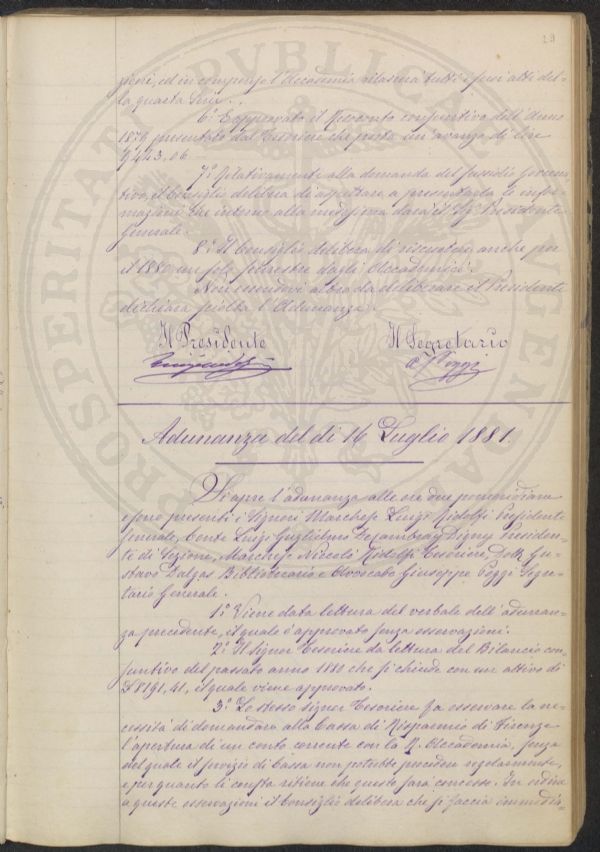 29
pieni, ed in compenso l'Accademia rilascerà tutti i suoi atti del-
la quarta Serie..
6.° È approvato il Reconto consuntivo dell'Anno
1879 presentato dal Tesoriere che porta un avanzo di Lire
9,443.06
7.° Relativamente alla domanda del sussidio Governa-
tivo, il Consiglio delibera di aspettare a presentarla le infor-
mazioni che intorno alla medesima darà il Sig. Presidente
Generale.
8.° Il Consiglio delibera di riscuotere anche per
il 1880 un solo semestre dagli Accademici.
Non essendovi altro da deliberare il Presidente
dichiara sciolta l'Adunanza.
Il Presidente Il Segretario
G. Poggi
Adunanza del dì 16 Luglio 1881.
Si apre l'adunanza alle ore due pomeridiane
e sono presenti i Signori Marchese Luigi Ridolfi Presidente
Generale, Conte Luigi Guglielmo Cambray Digny Presiden-
te di Sezione, Marchese Niccolò Ridolfi Tesoriere, Dott. Gu-
stavo Dalgas Bibliotecario e Avvocato Giuseppe Poggi Segre-
tario Generale.
1.° Viene data lettura del verbale dell'adunan-
za precedente, il quale è approvato senza osservazioni.
2.° Il signor Tesoriere dà lettura del Bilancio con-
suntivo del passato anno 1880 che si chiude con un attivo di
£ 8191,41, il quale viene approvato.
3.° Lo stesso signor Tesoriere fa osservare la ne-
cessità di domandare alla Cassa di Risparmio di Firenze
l'apertura di un conto corrente con la R. Accademia, senza
del quale il servizio di Cassa non potrebbe procedere regolarmente,
e per quanto li consta ritiene che questo sarà concesso. In ordine
a queste osservazioni il Consiglio delibera che si faccia immedia-
PROSPERITATI PVBLICAE AVGENDAE